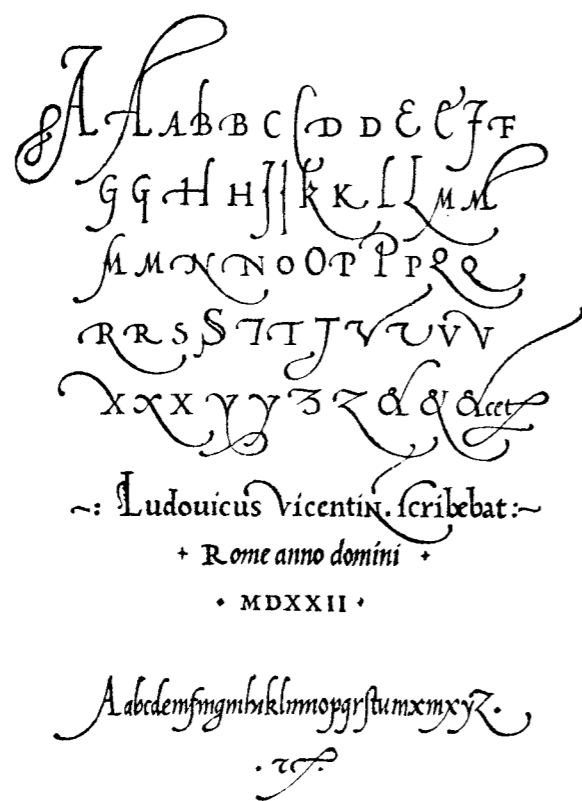 A A A b B C D D E E F F
G G H H I I k K L L M M
M M N N O O P P P Q Q
R R S S T T T V V V V
X X X Y Y Z Z & & &cet
~: Ludouicus Vicentin. ſcribebat :~
+ Rome anno domini +
· MDXXII ·
Aabcdemfmgmhiklmnmopqrſtumxmxyz.